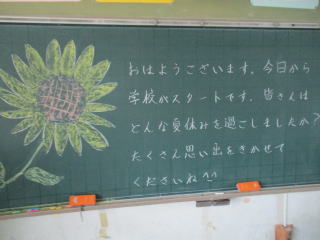 おはようございます。今日から
学校がスタートです。皆さんは
どんな夏休みを過ごしましたか?
たくさん思い出をきかせて
くださいね^^